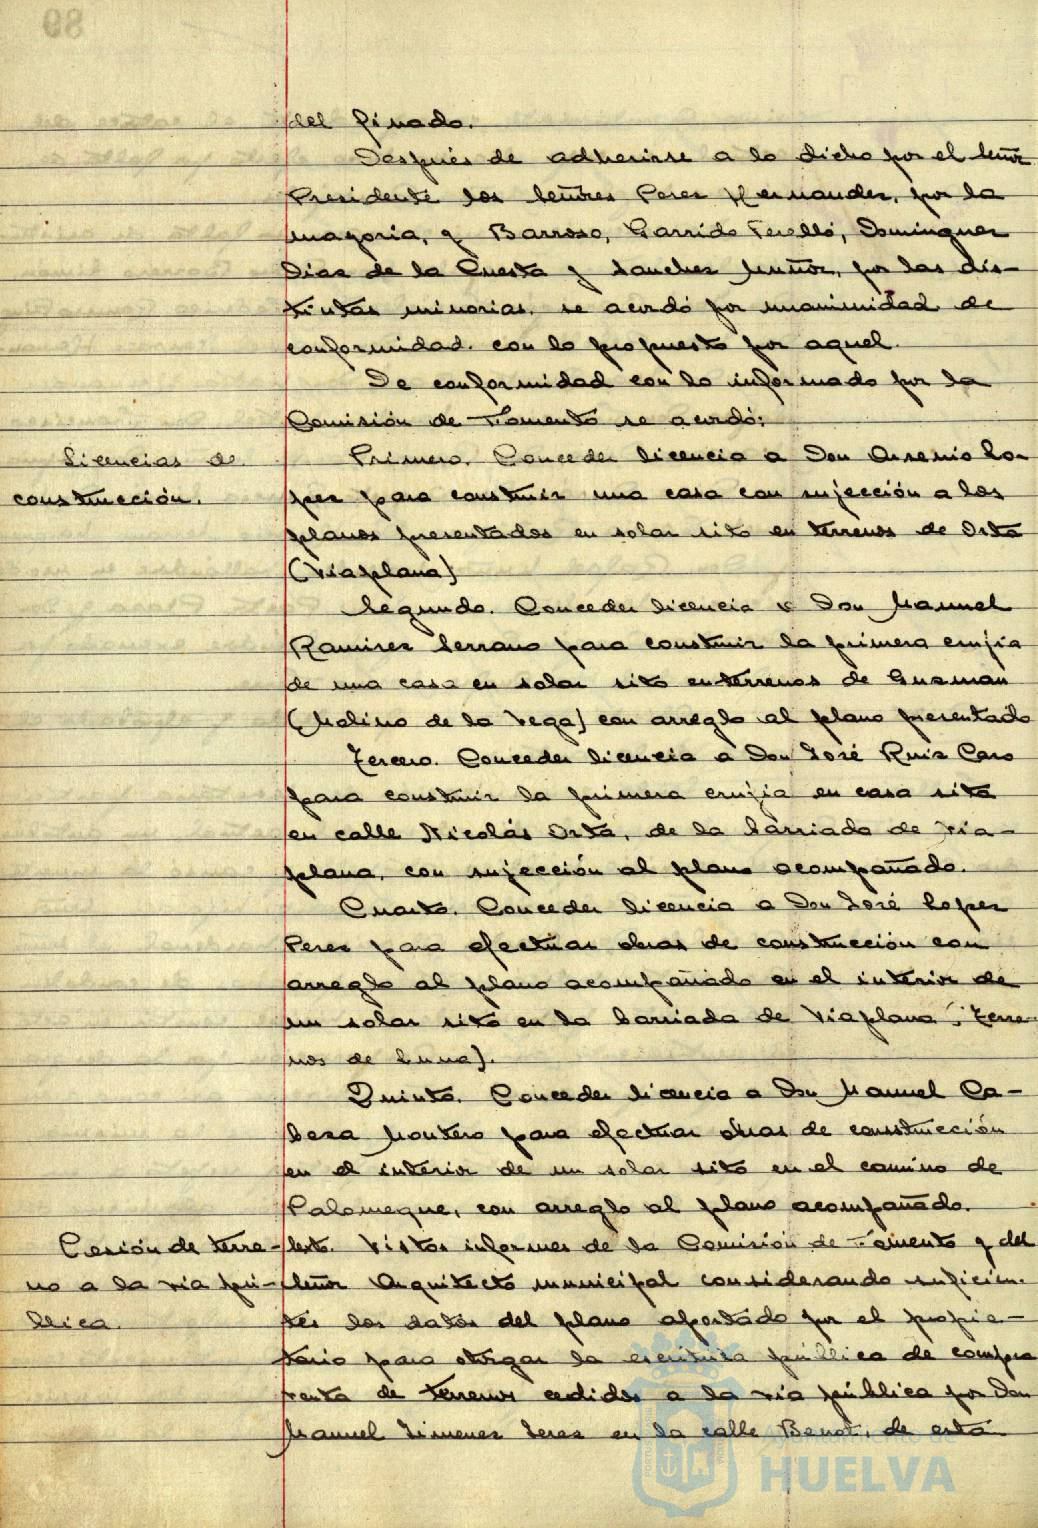 del finado.
Después de adherirse a lo dicho por el Señor
Presidente los Señores Perez Hernandez, por la
mayoria, y Barroso, Garrido Perelló, Dominguez
Diaz de la Cuesta y Sanchez Muñoz, por las dis-
tintas minorias, se acordó por unanimidad de
conformidad con lo propuesto por aquel.
De conformidad con lo informado por la
Comisión de Fomento se acordó:
Licencias de
construcción.
Primero. Conceder licencia a Don Arsenio Lo-
pez para construir una casa con sujección a los
planos presentados en solar sito en terrenos de Orta
(Viaplana)
Segundo. Conceder licencia a Don Manuel
Ramirez Serrano para construir la primera crujia
de una casa en solar sito en terrenos de Guzman
(Molino de la Vega) con arreglo al plano presentado
Tercero. Conceder licencia a Don José Ruiz Caro
para construir la primera crujia en casa sita
en calle Nicolás Orta, de la barriada de Via-
plana, con sujección al plano acompañado.
Cuarto. Conceder licencia a Don José Lopez
Perez para efectuar obras de construcción con
arreglo al plano acompañado en el interior de
un solar sito en la barriada de Viaplana (Terre-
nos de Luna).
Quinto. Conceder licencia a Don Manuel Ca-
beza Montero para efectuar obras de construcción
en el interior de un solar sito en el camino de
Palomeque, con arreglo al plano acompañado.
Cesión de terre-
no a la via pú-
blica.
Sexto. Vistos informes de la Comisión de Fomento y del
Señor Arquitecto municipal considerando suficien-
tes los datos del plano aportado por el propie-
tario para otorgar la escritura pública de compra
venta de terrenos cedidos a la via pública por Don
Manuel Jimenez in la calle Benot, de esta
Ayuntamiento de
HUELVA